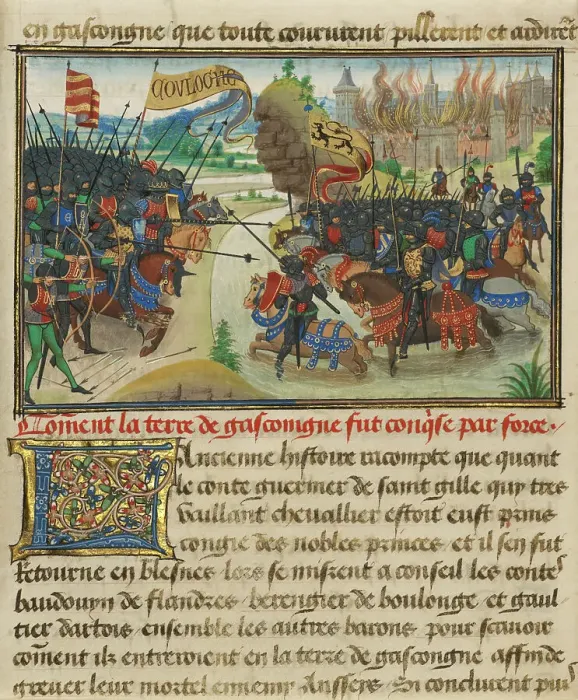 en gascongne que toute coururent pillerent et ardirēt
COVLOGNE
Cōment la terre de gascongne fut conq̄se par force.
L'Ancienne histoire racompte que quant
le conte guerinier de saint gille quy tres
vaillant chevallier estoit eust prins
congie des nobles princes et il sen fut
Retourne en blesnes lors se misrent a conseil les conteˢ
baudouyn de flandres berengier de boulonge et gaul
tier dartois ensemble les autres barons pour scavoir
cōment ilz entreroient en la terre de gascongne affin de
grever leur mortel ennemy Anssers Si conclurent